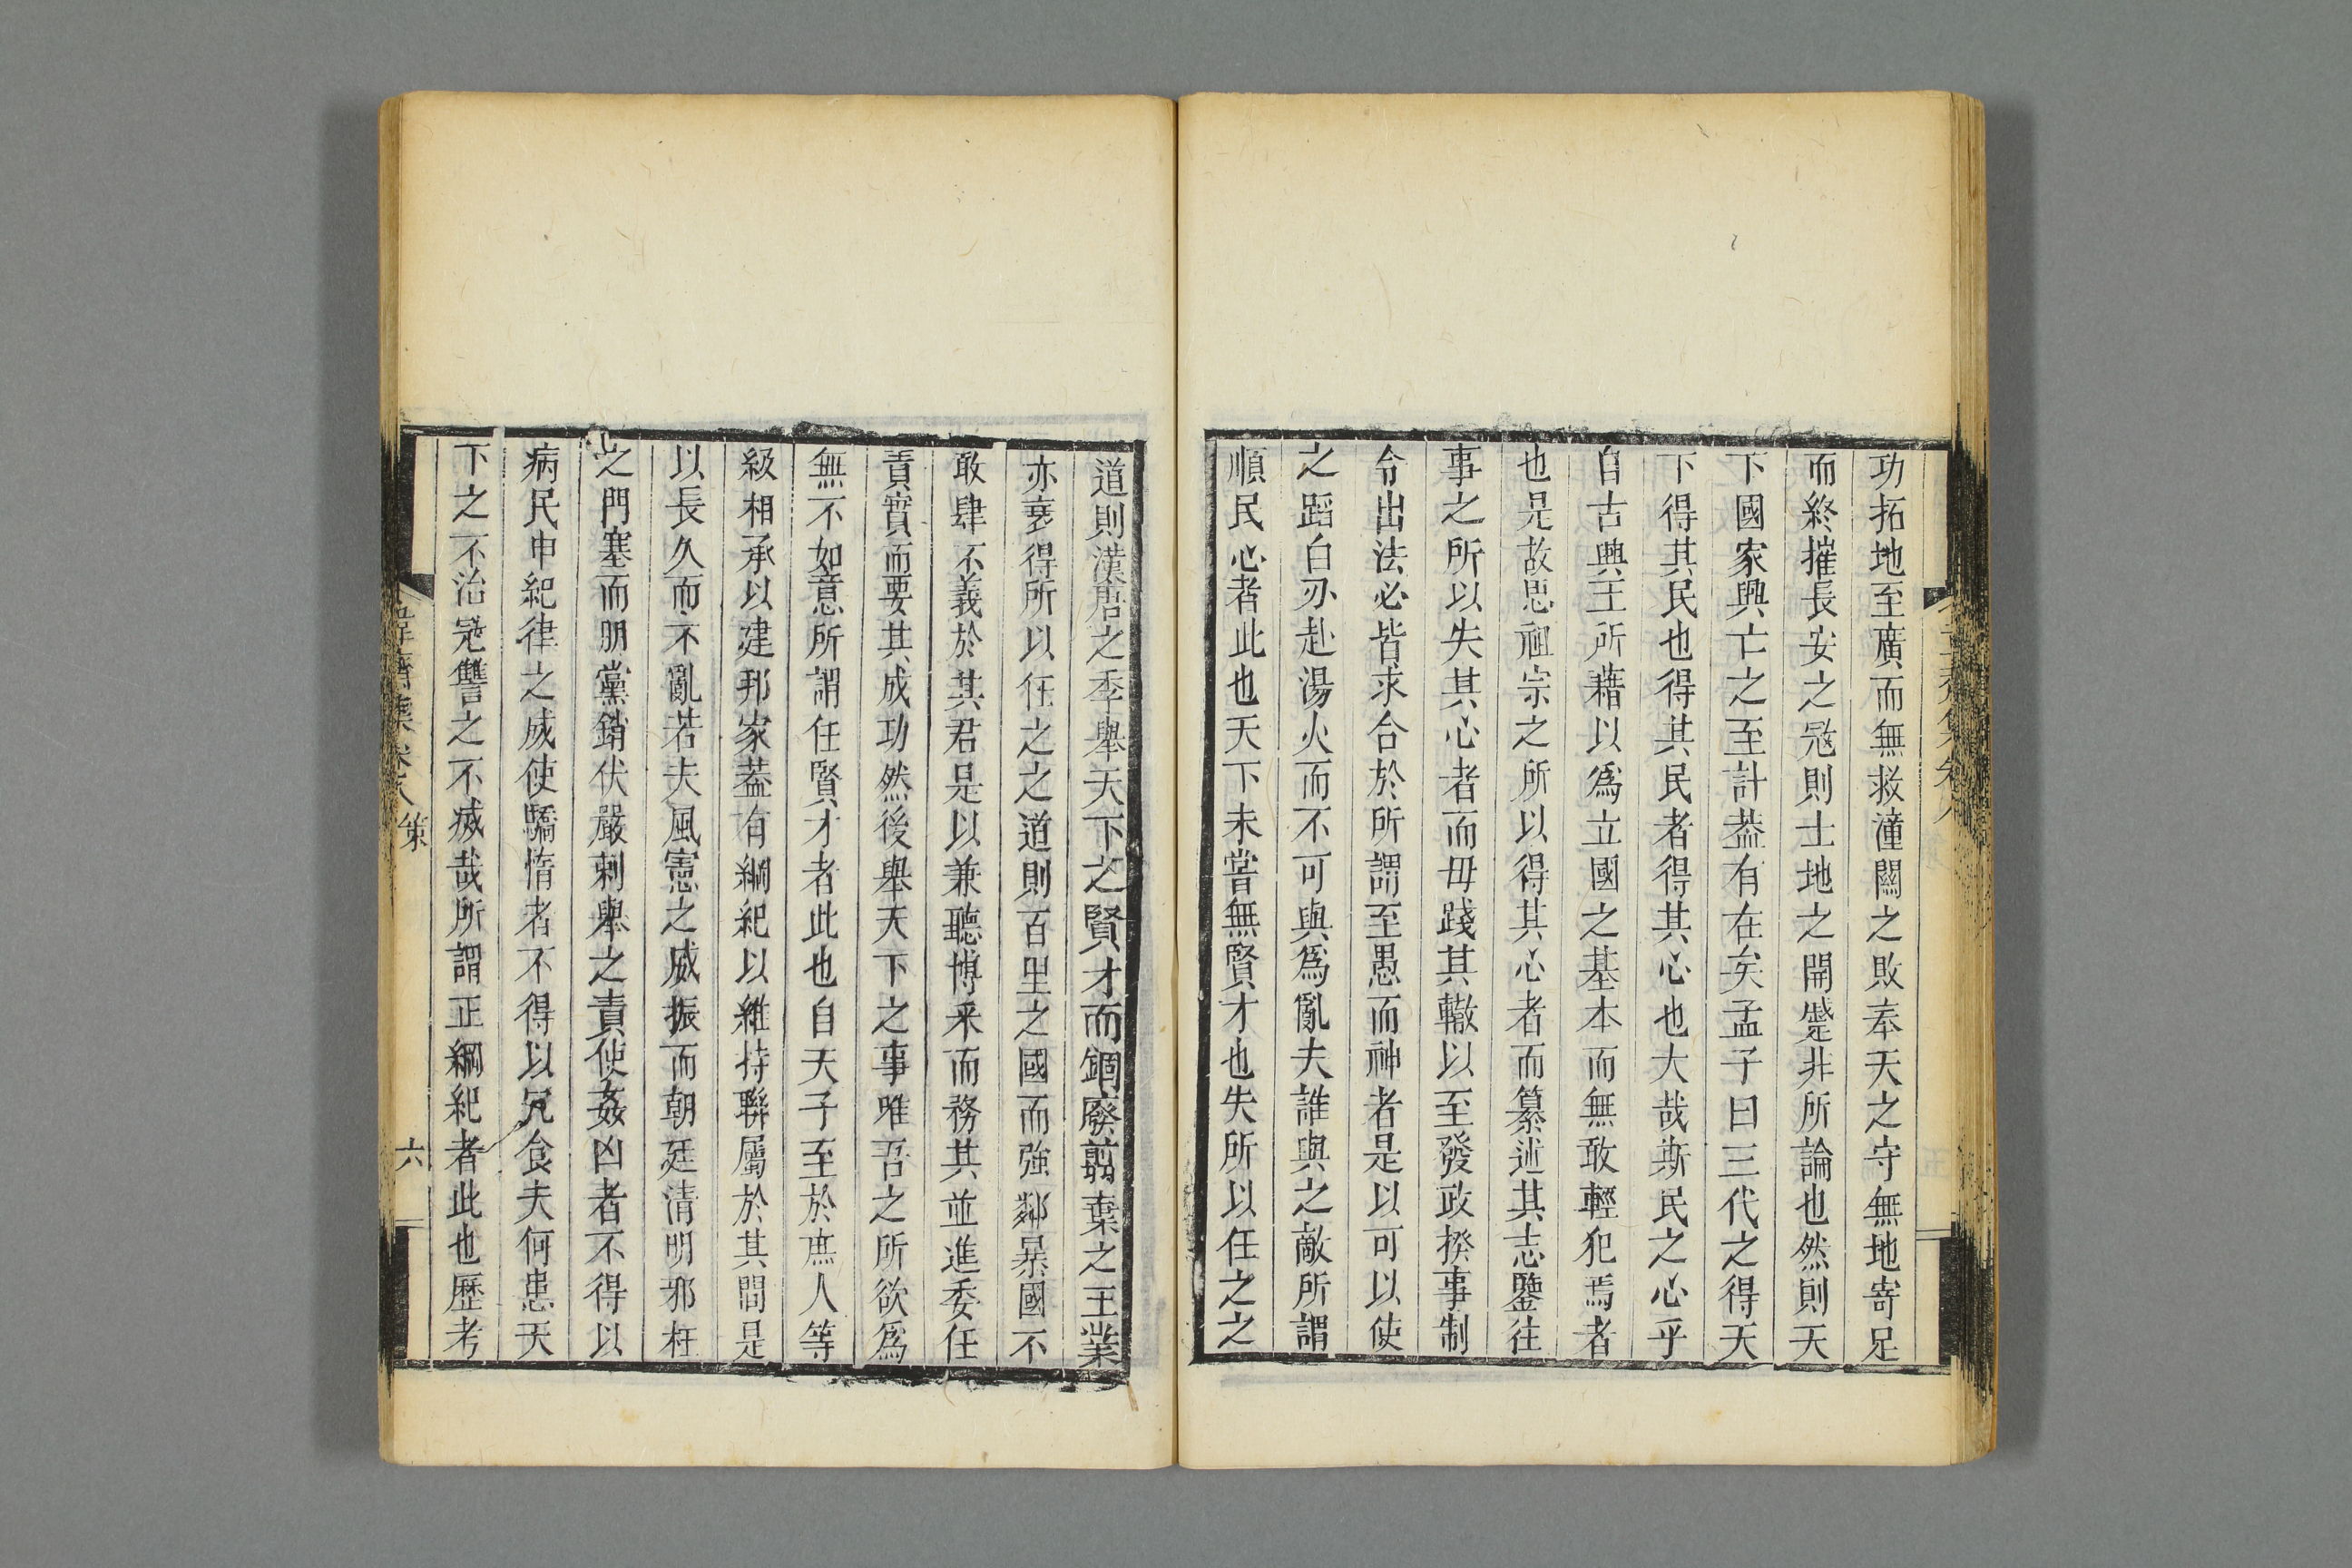 功拓地至廣而無救潼關之敗奉天之守無地寄足
而終摧長安之寇則土地之開蹙非所論也然則天
下國家興亡之至計葢有在矣孟子曰三代之得天
下得其民也得其民者得其心也大哉斯民之心乎
自古興王所藉以爲立國之基本而無敢輕犯焉者
也是故思祖宗之所以得其心者而纂述其志鑒往
事之所以失其心者而毋踐其轍以至發政揆事制
令出法必皆求合於所謂至愚而神者是以可以使
之蹈白刃赴湯火而不可與爲亂夫誰與之敵所謂
順民心者此也天下未嘗無賢才也失所以任之之
道則漢唐之季舉天下之賢才而錮廢翦棄之王業
亦衰得所以任之之道則百里之國而強鄰暴國不
敢肆不義於其君是以兼聽博采而務其並進委任
責實而要其成功然後舉天下之事唯吾之所欲爲
無不如意所謂任賢才者此也自天子至於庶人等
級相承以建邦家葢有綱紀以維持聯屬於其間是
以長久而不亂若夫風憲之威振而朝廷清明邪枉
之門塞而朋黨銷伏嚴刺舉之責使姦凶者不得以
病民申紀律之威使驕惰者不得以冗食夫何患天
下之不治寇讐之不滅哉所謂正綱紀者此也歷考
集卷之八 策 六